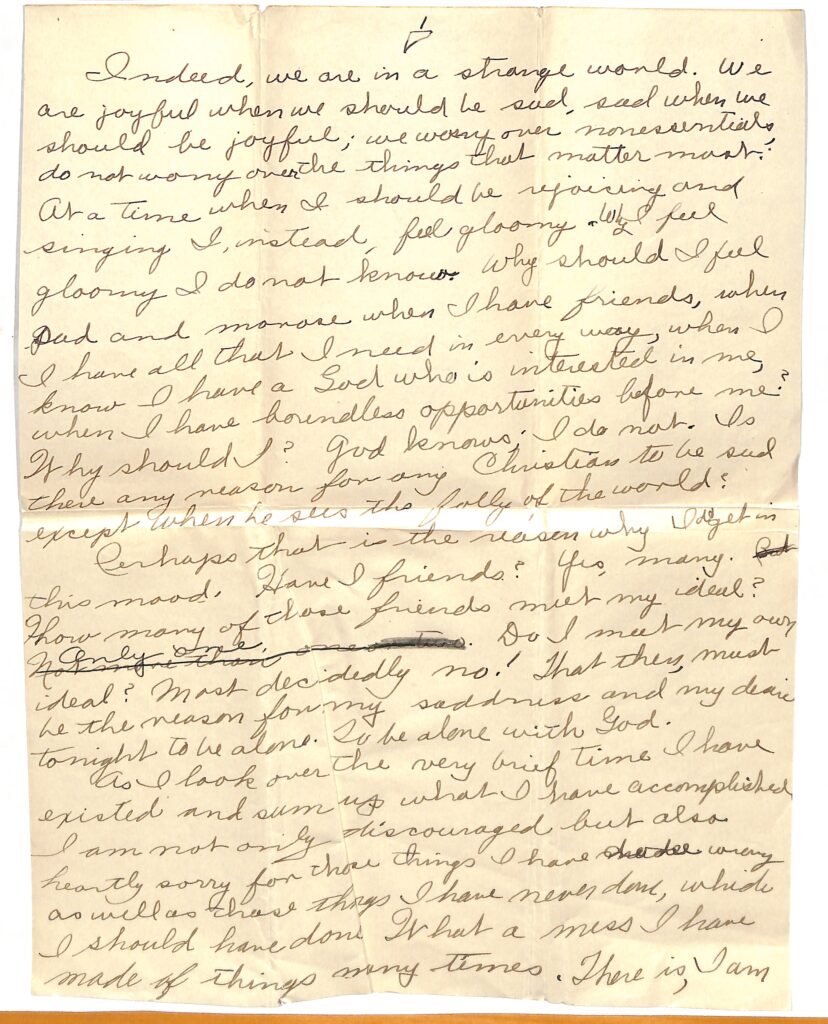 Indeed, we are in a strange world. We
are joyful when we should be sad, sad when we
should be joyful; we worry over nonessentials,
do not worry over the things that matter most.
At a time when I should be rejoicing and
singing I, instead, feel gloomy. Why I feel
gloomy I do not know. Why should I feel
sad and morose when I have friends, when
I have all that I need in every way, when I
know I have a God who is interested in me,
when I have boundless opportunities before me?
Why should I? God knows; I do not. Is
there any reason for any Christian to be sad
except when he sees the folly of the world?
Perhaps that is the reason why I do get in
this mood. Have I friends? Yes, many. But
how many of those friends meet my ideal?
Only one.
Not more than one or two. Do I meet my own
ideal? Most decidedly no! That then, must
be the reason for my saddness and my desire
tonight to be alone. To be alone with God.
As I look over the very brief time I have
existed and sum up what I have accomplished
I am not only discouraged but also
heartly sorry for those things I have wrong
as well as those things I have never done, which
I should have done What a mess I have
made of things many times. There is, I am